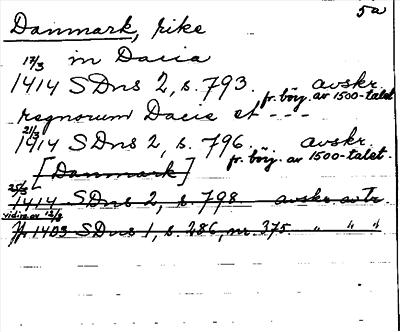 5a
Danmark, rike
17/3 in Dacia
1414 SDns 2, s. 793. avskr.
fr. börj. av 1500-talet
regnorum Dacie et - - -
21/3
1414 SDns 2, s. 796. avskr.
fr. börj. av 1500-talet.
[Danmark]
25/3
1414 SDns 2, s. 798 avskr av tr.
vidim av 12/8
1403 SDns 1, s. 286, nr. 375 " " "